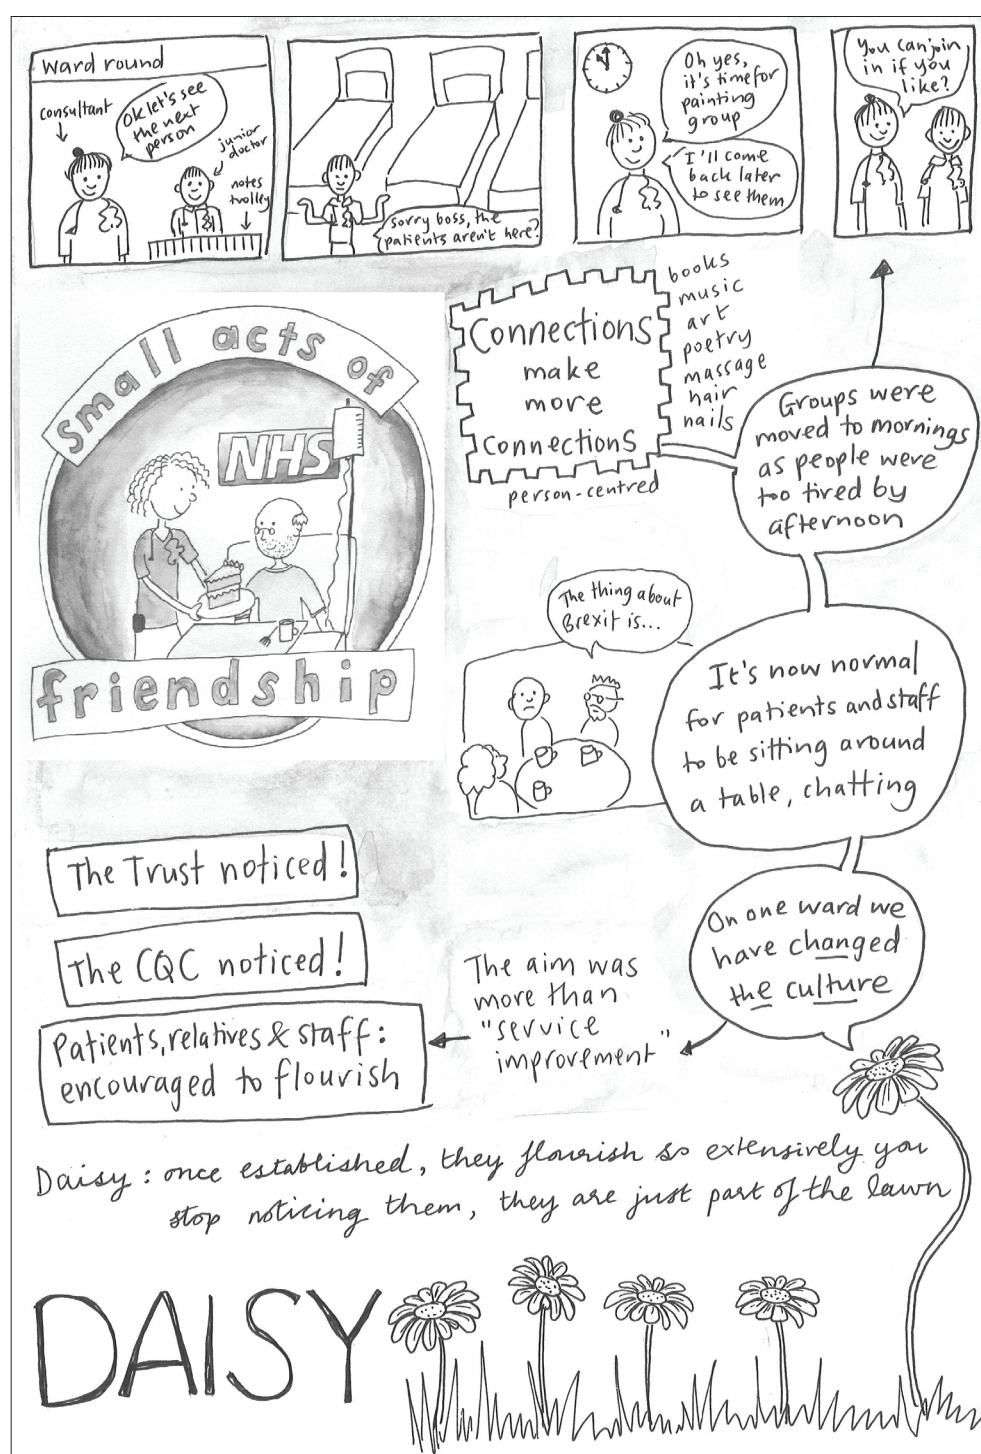 ward round
consultant
Ok let's see
the next
person
junior
doctor
notes
trolley
Sorry boss, the
patients aren't here?
Oh yes,
it's time for
painting
group
I'll come
back later
to see them
You can join
in if you
like?
small acts of
NHS
friendship
Connections
make
more
connections
person-centred
books
music
art
poetry
massage
hair
nails
Groups were
moved to mornings
as people were
too tired by
afternoon
The thing about
Brexit is...
It's now normal
for patients and staff
to be sitting around
a table, chatting
On one ward we
have changed
the culture
The aim was
more than
"service
improvement"
The Trust noticed!
The CQC noticed!
Patients, relatives & staff:
encouraged to flourish
Daisy: once established, they flourish so extensively you
stop noticing them, they are just part of the lawn
DAISY